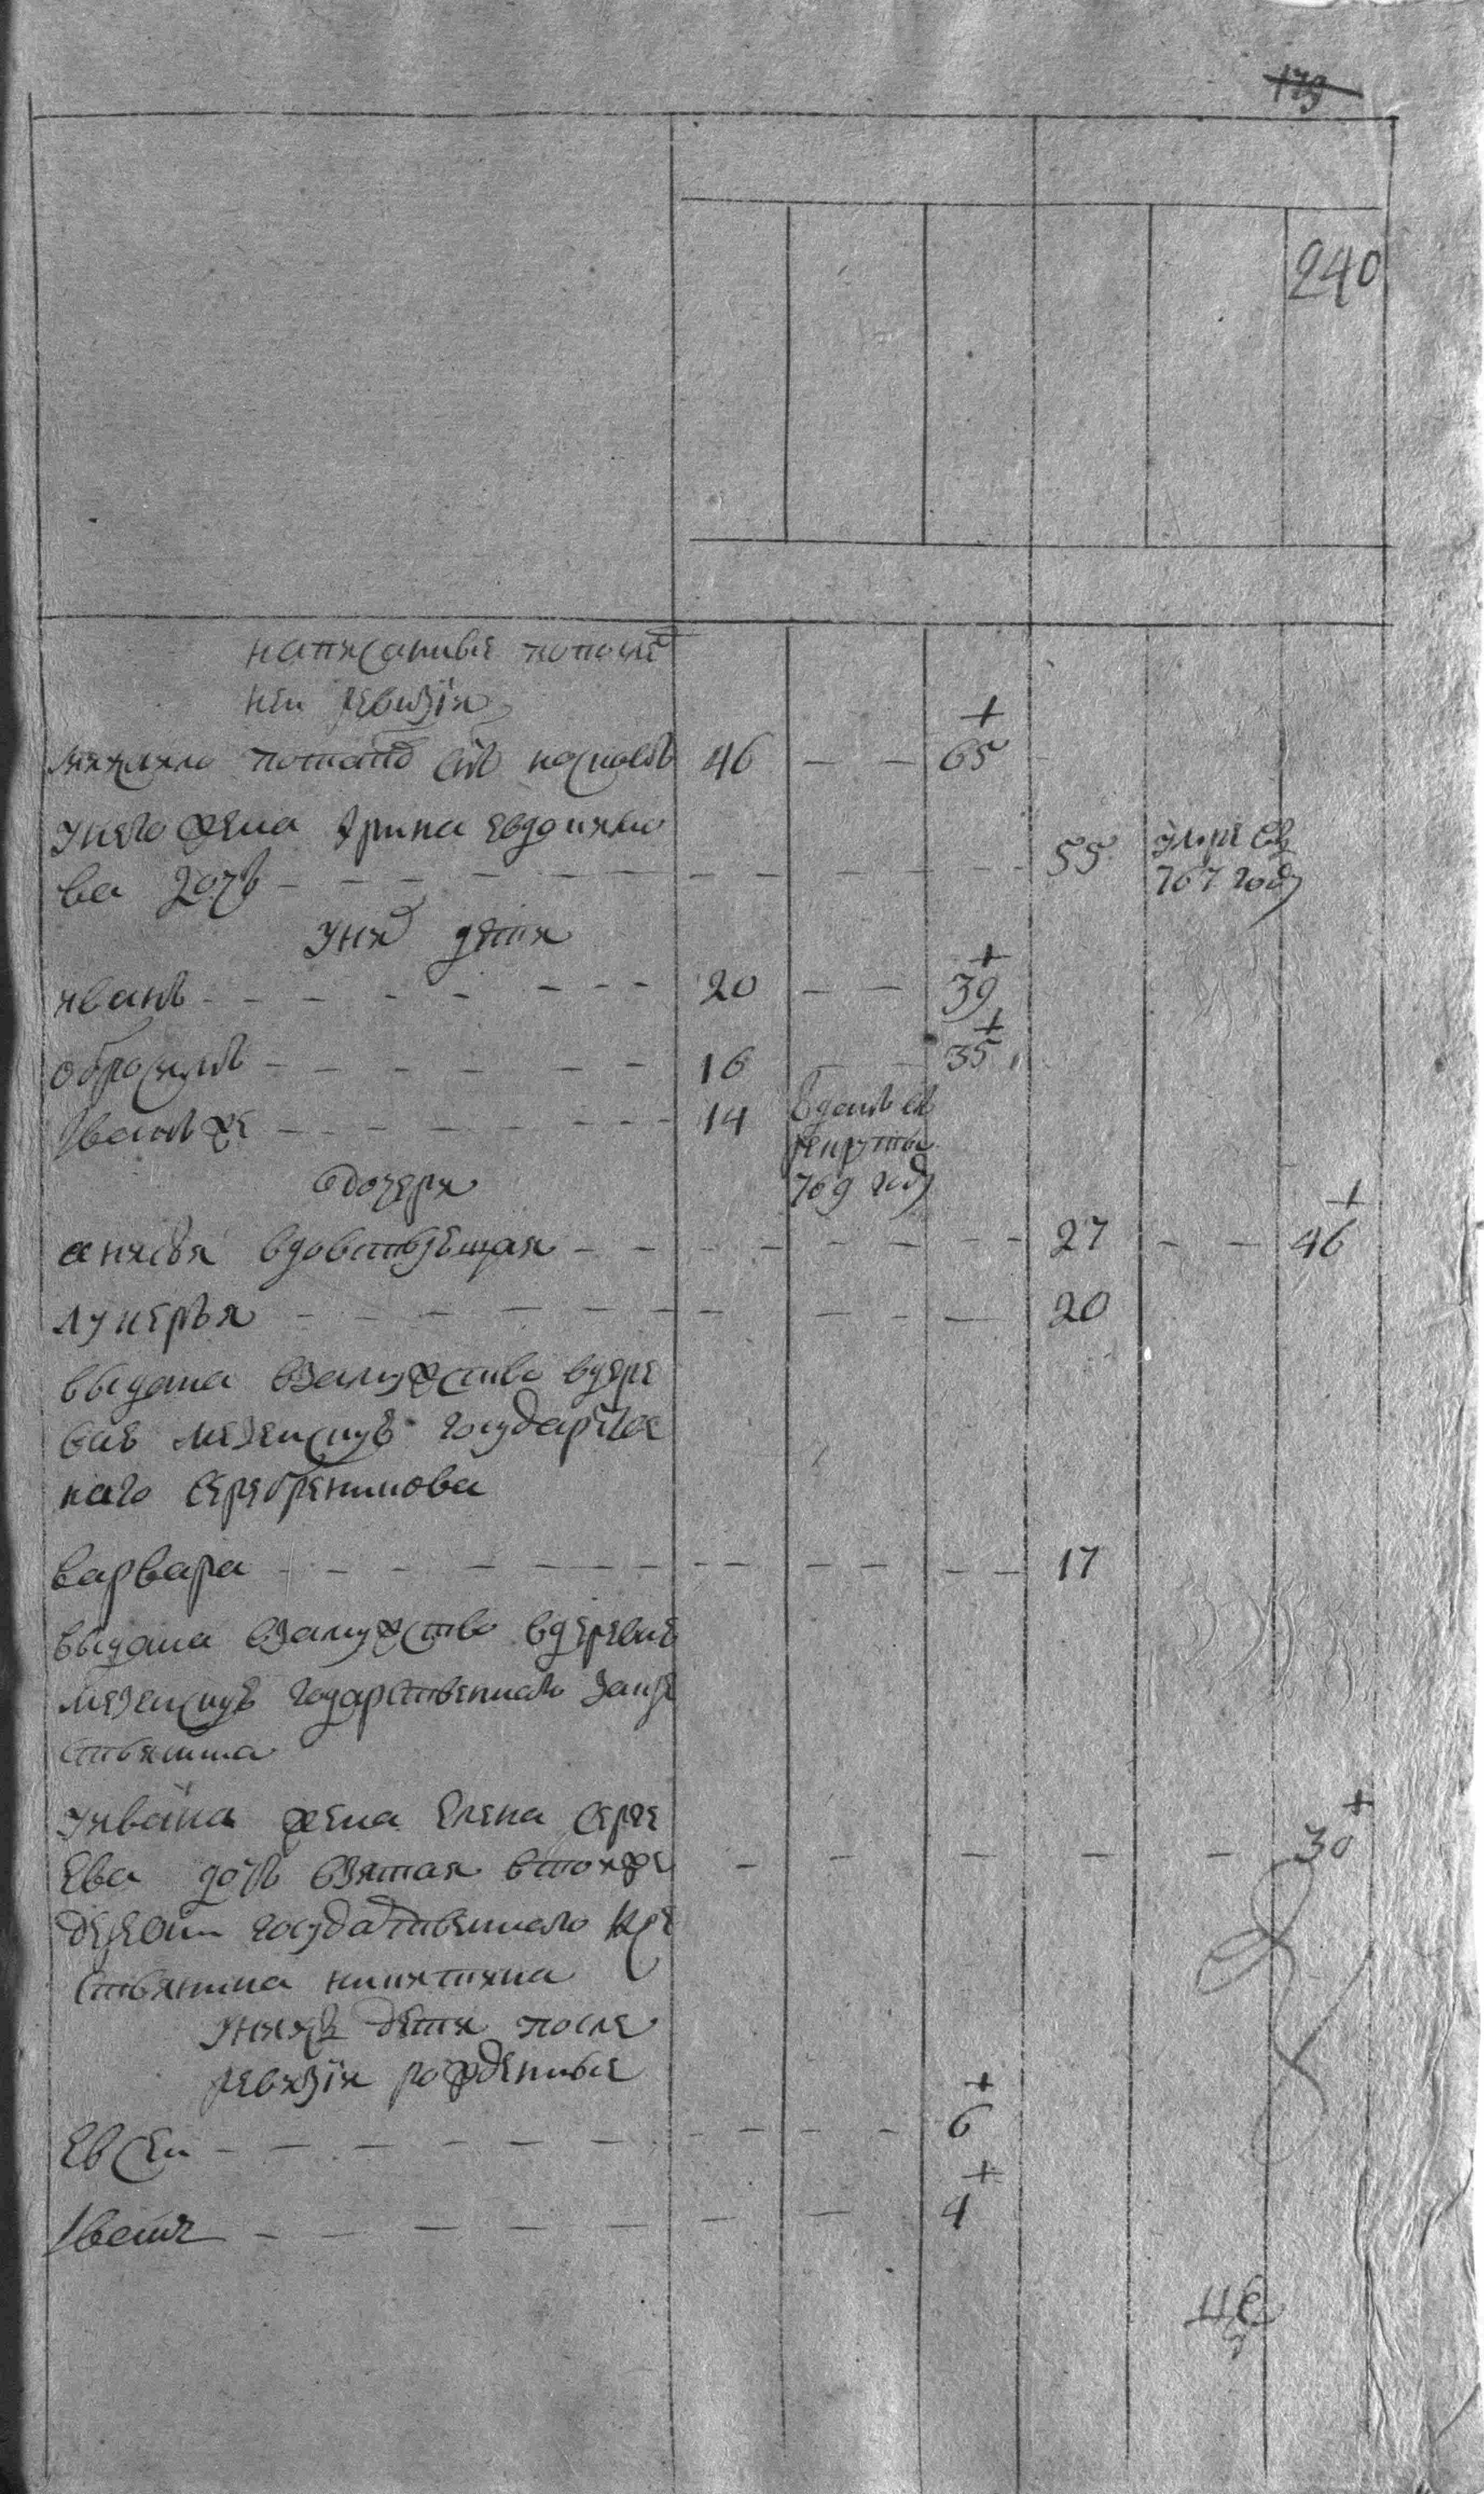 179
240
написанныя попослѣ
ней ревизiи
михаило потапов снъ носковъ 46 — — + 65
унего жена Ирина евдокимо
ва дочь — — — 55 умре въ
767 году
уних дети
иванъ — — — 20 — — + 39
обросимъ — — — 16 — — + 35
Iванъ же — — — 14 Отданъ въ
рекруты
769 году
дочери
анисья вдовствующая — — — 27 — — + 46
лукерья — — — 20
выдана взамужство вдере
вне мезенску государстве
наго Серебреникова
варвара — — — 17
выдана взамужство вдеревне
мезенску годарственнаго
стьянина
уивана жена Елена Серге
Ева дочь взятая втойже — — — + 30
деревни государственнаго кре
стьянина никитина
унихъ дети после
ревизiи рожденные
Евсей — — — + 6
Iванъ — — — + 4